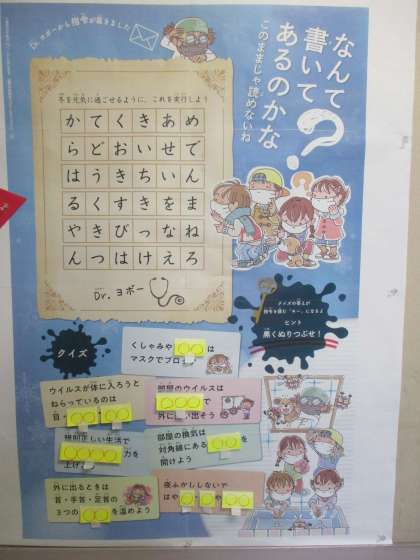 Dr.ヨボーから指令が届きました
なんて
書いて
あるのかな
?
このままじゃ読めないね
冬を元気に過ごせるように、これを実行しよう
かてくきあめ
らどおいせで
はうきちいん
るくすきをま
やきびっなね
んつはけえろ
Dr.ヨボー
クイズの答えが
指令を読む「キー」になるよ
ヒント
黒くぬりつぶせ!
クイズ
くしゃみや〇〇は
マスクでブロック
ウイルスが体に入ろうと
ねらっているのは
目・〇〇・〇〇
部屋のウイルスは
〇〇〇〇で
外に出そう
規則正しい生活で
〇〇〇〇〇力を
上げ
部屋の換気は
対角線にある〇〇を
開けよう
外に出るときは
首・手首・足首の
3つの〇〇を温めよう
夜ふかししないで
はや〇・はや〇〇